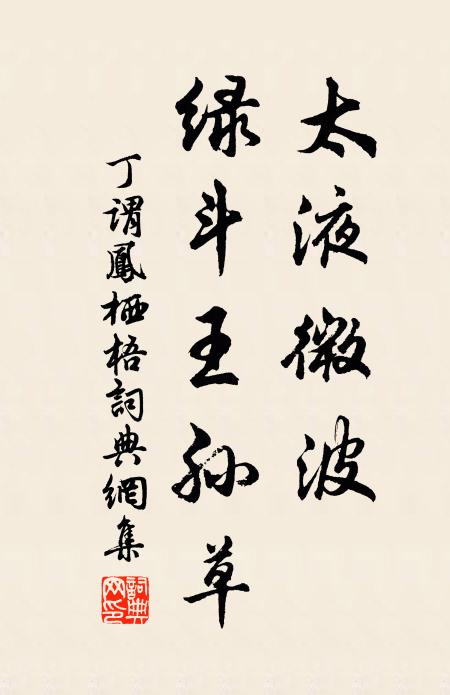 太液微波
绿斗王孙草
丁谓鳳栖梧詞典網集
詞典
网印